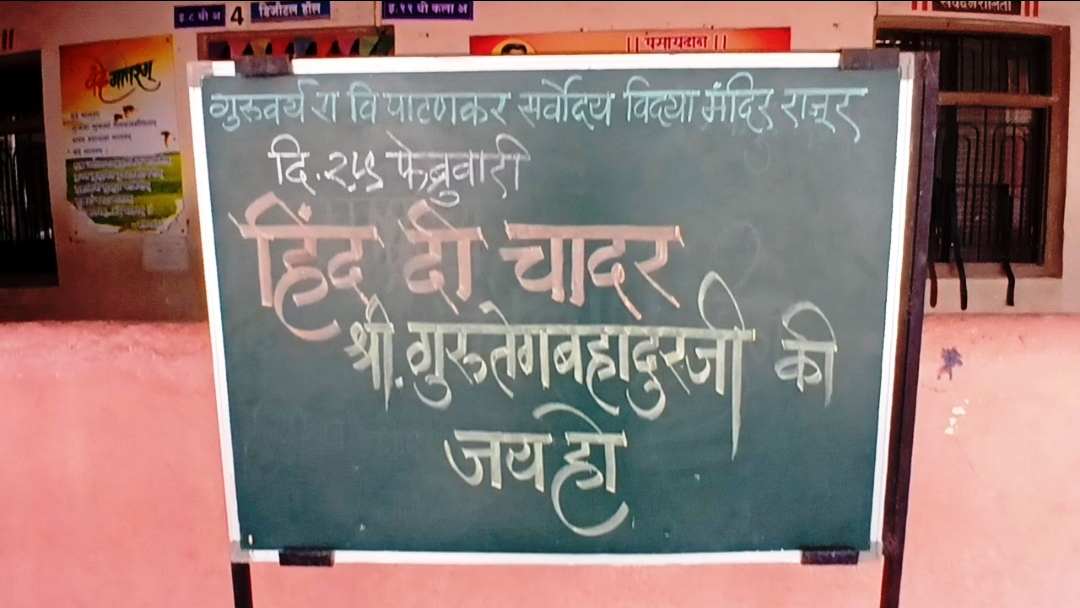 इ.८ वी अ
4
डिजीटल हॉल
इ.११ वी कला अ
संवेदनशीलता
|| पसायदान ||
वंदे मातरम्
गुरुवर्य रा वि पाटणकर सर्वोदय विद्या मंदिर राजूर
दि.२५ फेब्रुवारी
हिंद दी चादर
श्री.गुरुतेगबहादुरजी की
जय हो